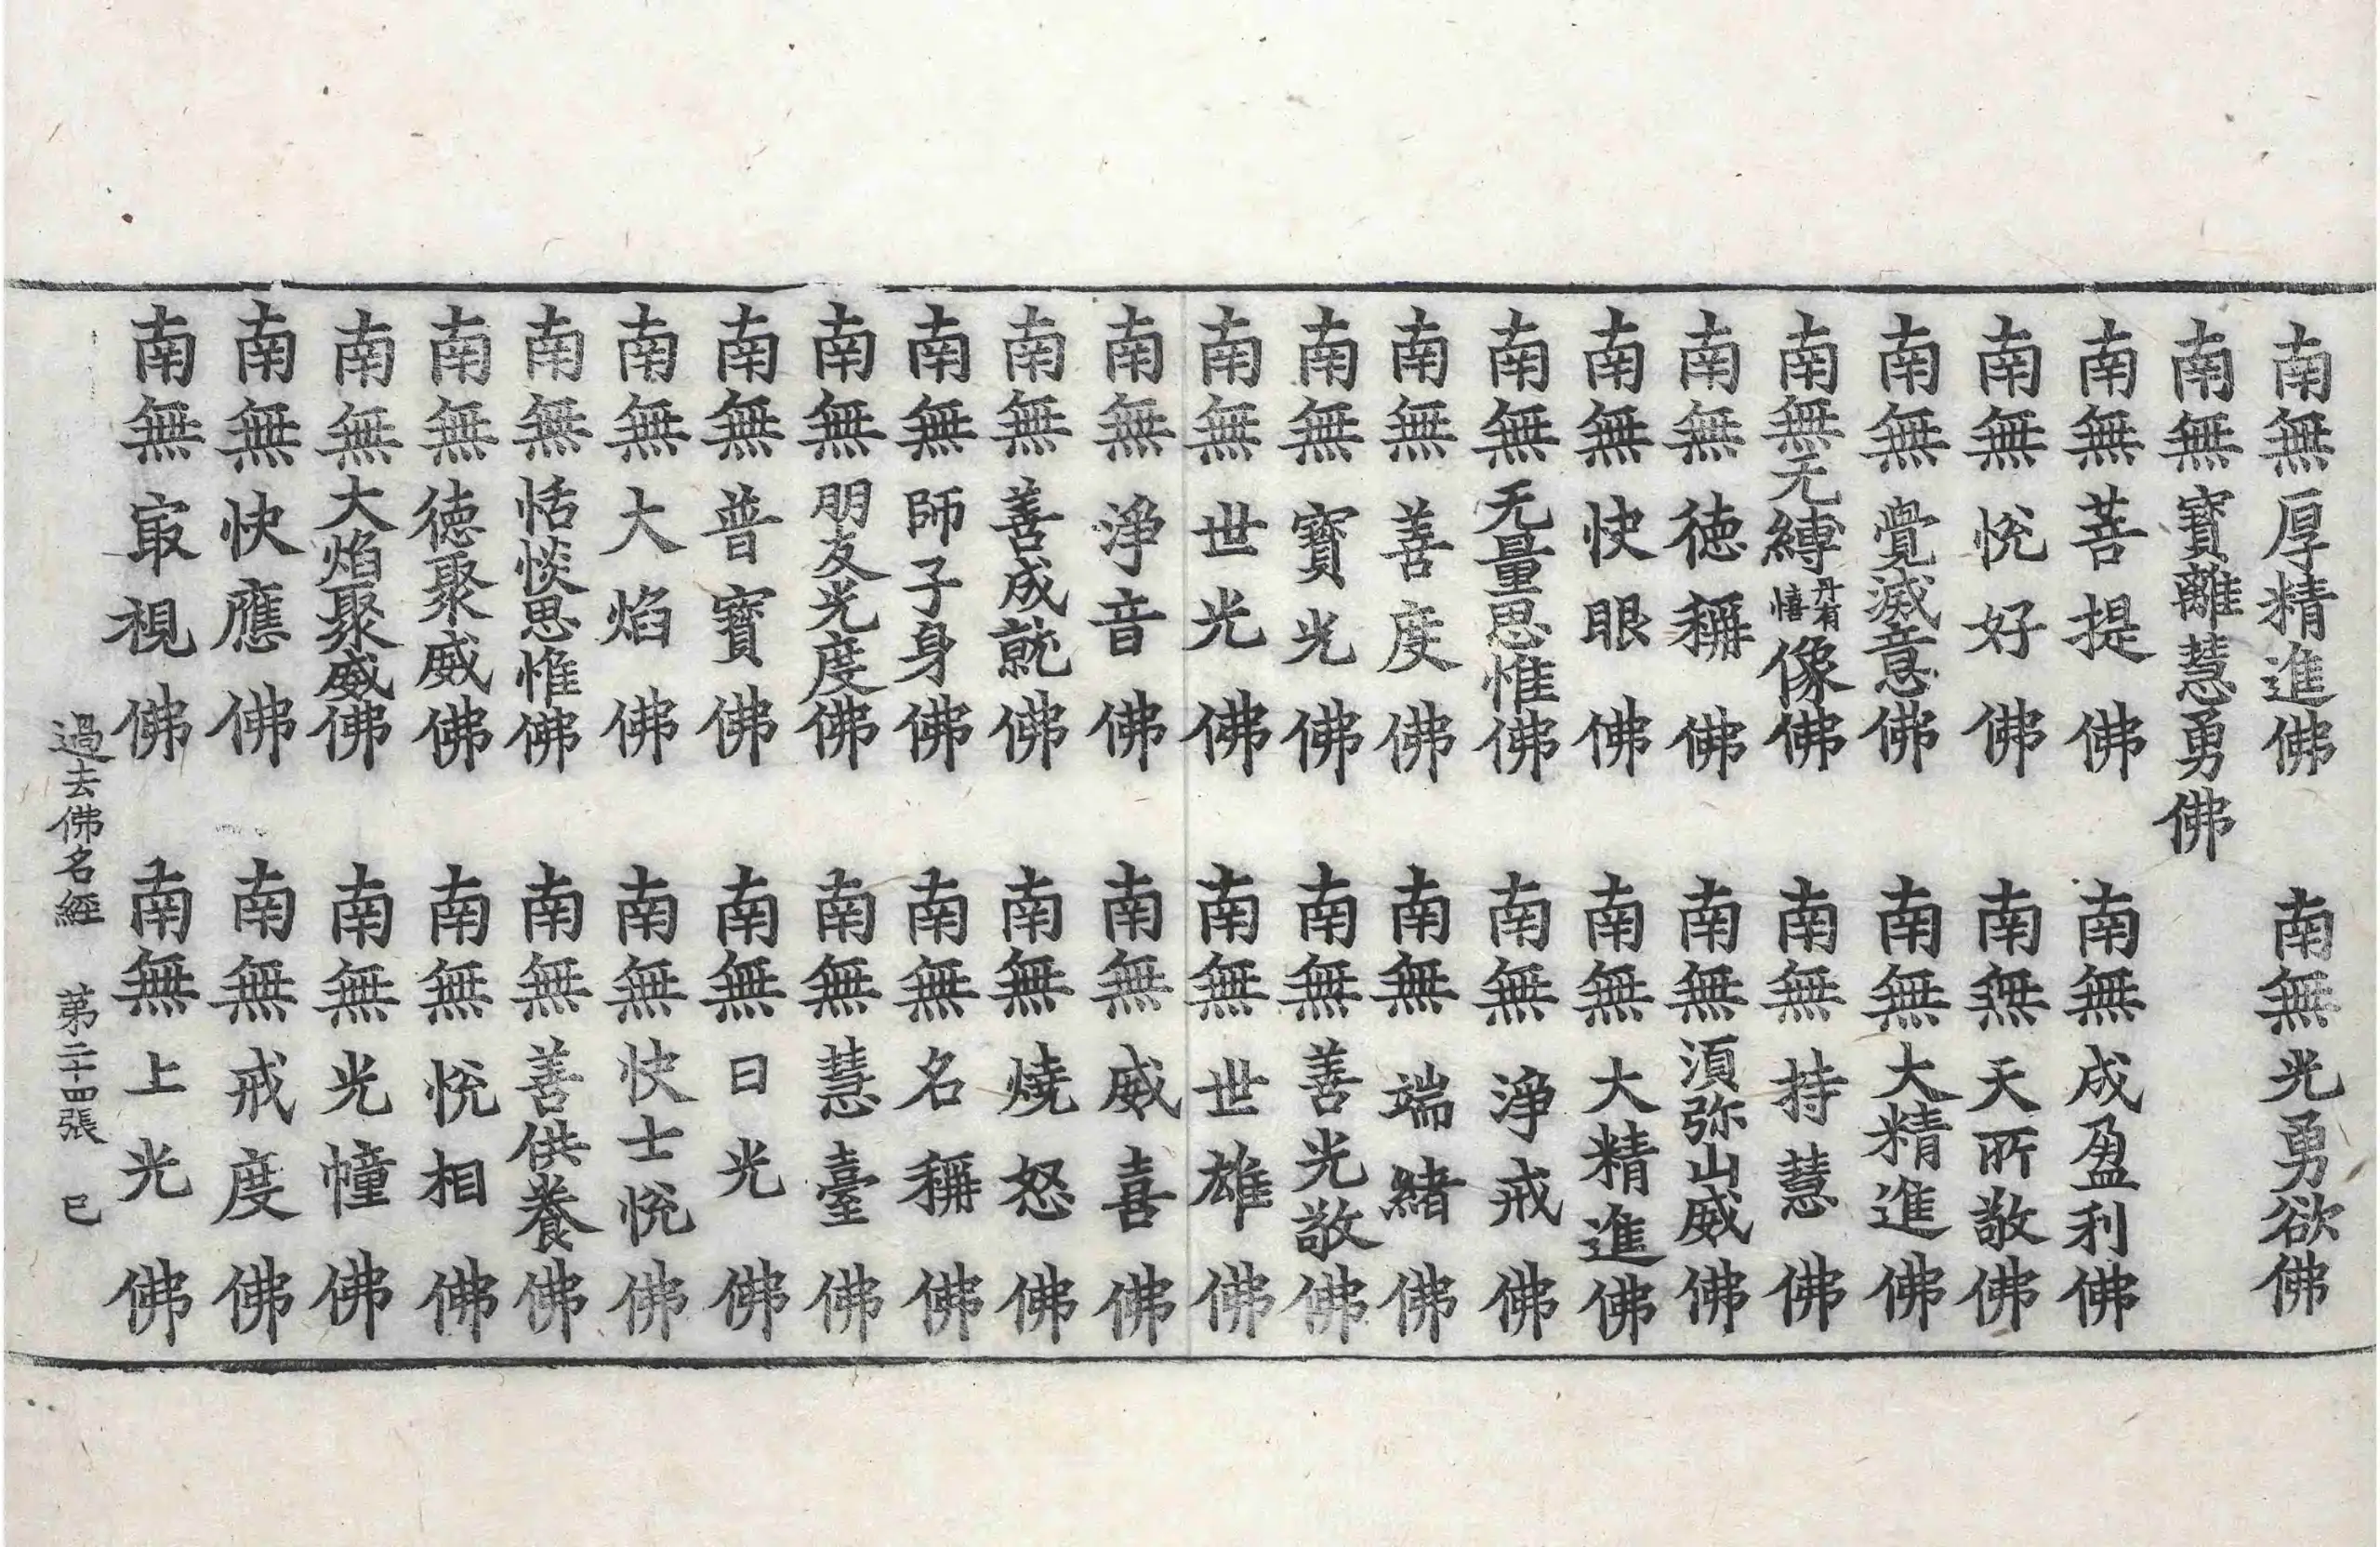 南無厚精進佛 南無光勇欲佛
南無寶離慧勇佛
南無菩提佛 南無成盈利佛
南無悅好佛 南無天所敬佛
南無覺滅意佛 南無大精進佛
南無无縛丹有憘像佛 南無持慧佛
南無徳稱佛 南無湏弥山威佛
南無快眼佛 南無大精進佛
南無无量思惟佛 南無淨戒佛
南無善度佛 南無端緒佛
南無寶光佛 南無善光敬佛
南無世光佛 南無世雄佛
南無淨音佛 南無威喜佛
南無善成就佛 南無燒怒佛
南無師子身佛 南無名稱佛
南無朋友光度佛 南無慧臺佛
南無普寶佛 南無日光佛
南無大焰佛 南無快士悅佛
南無恬惔思惟佛 南無善供養佛
南無徳聚威佛 南無悅相佛
南無大焰聚威佛 南無光幢佛
南無快應佛 南無戒度佛
南無㝡視佛 南無上光佛
過去佛名經 苐二十四張 巳